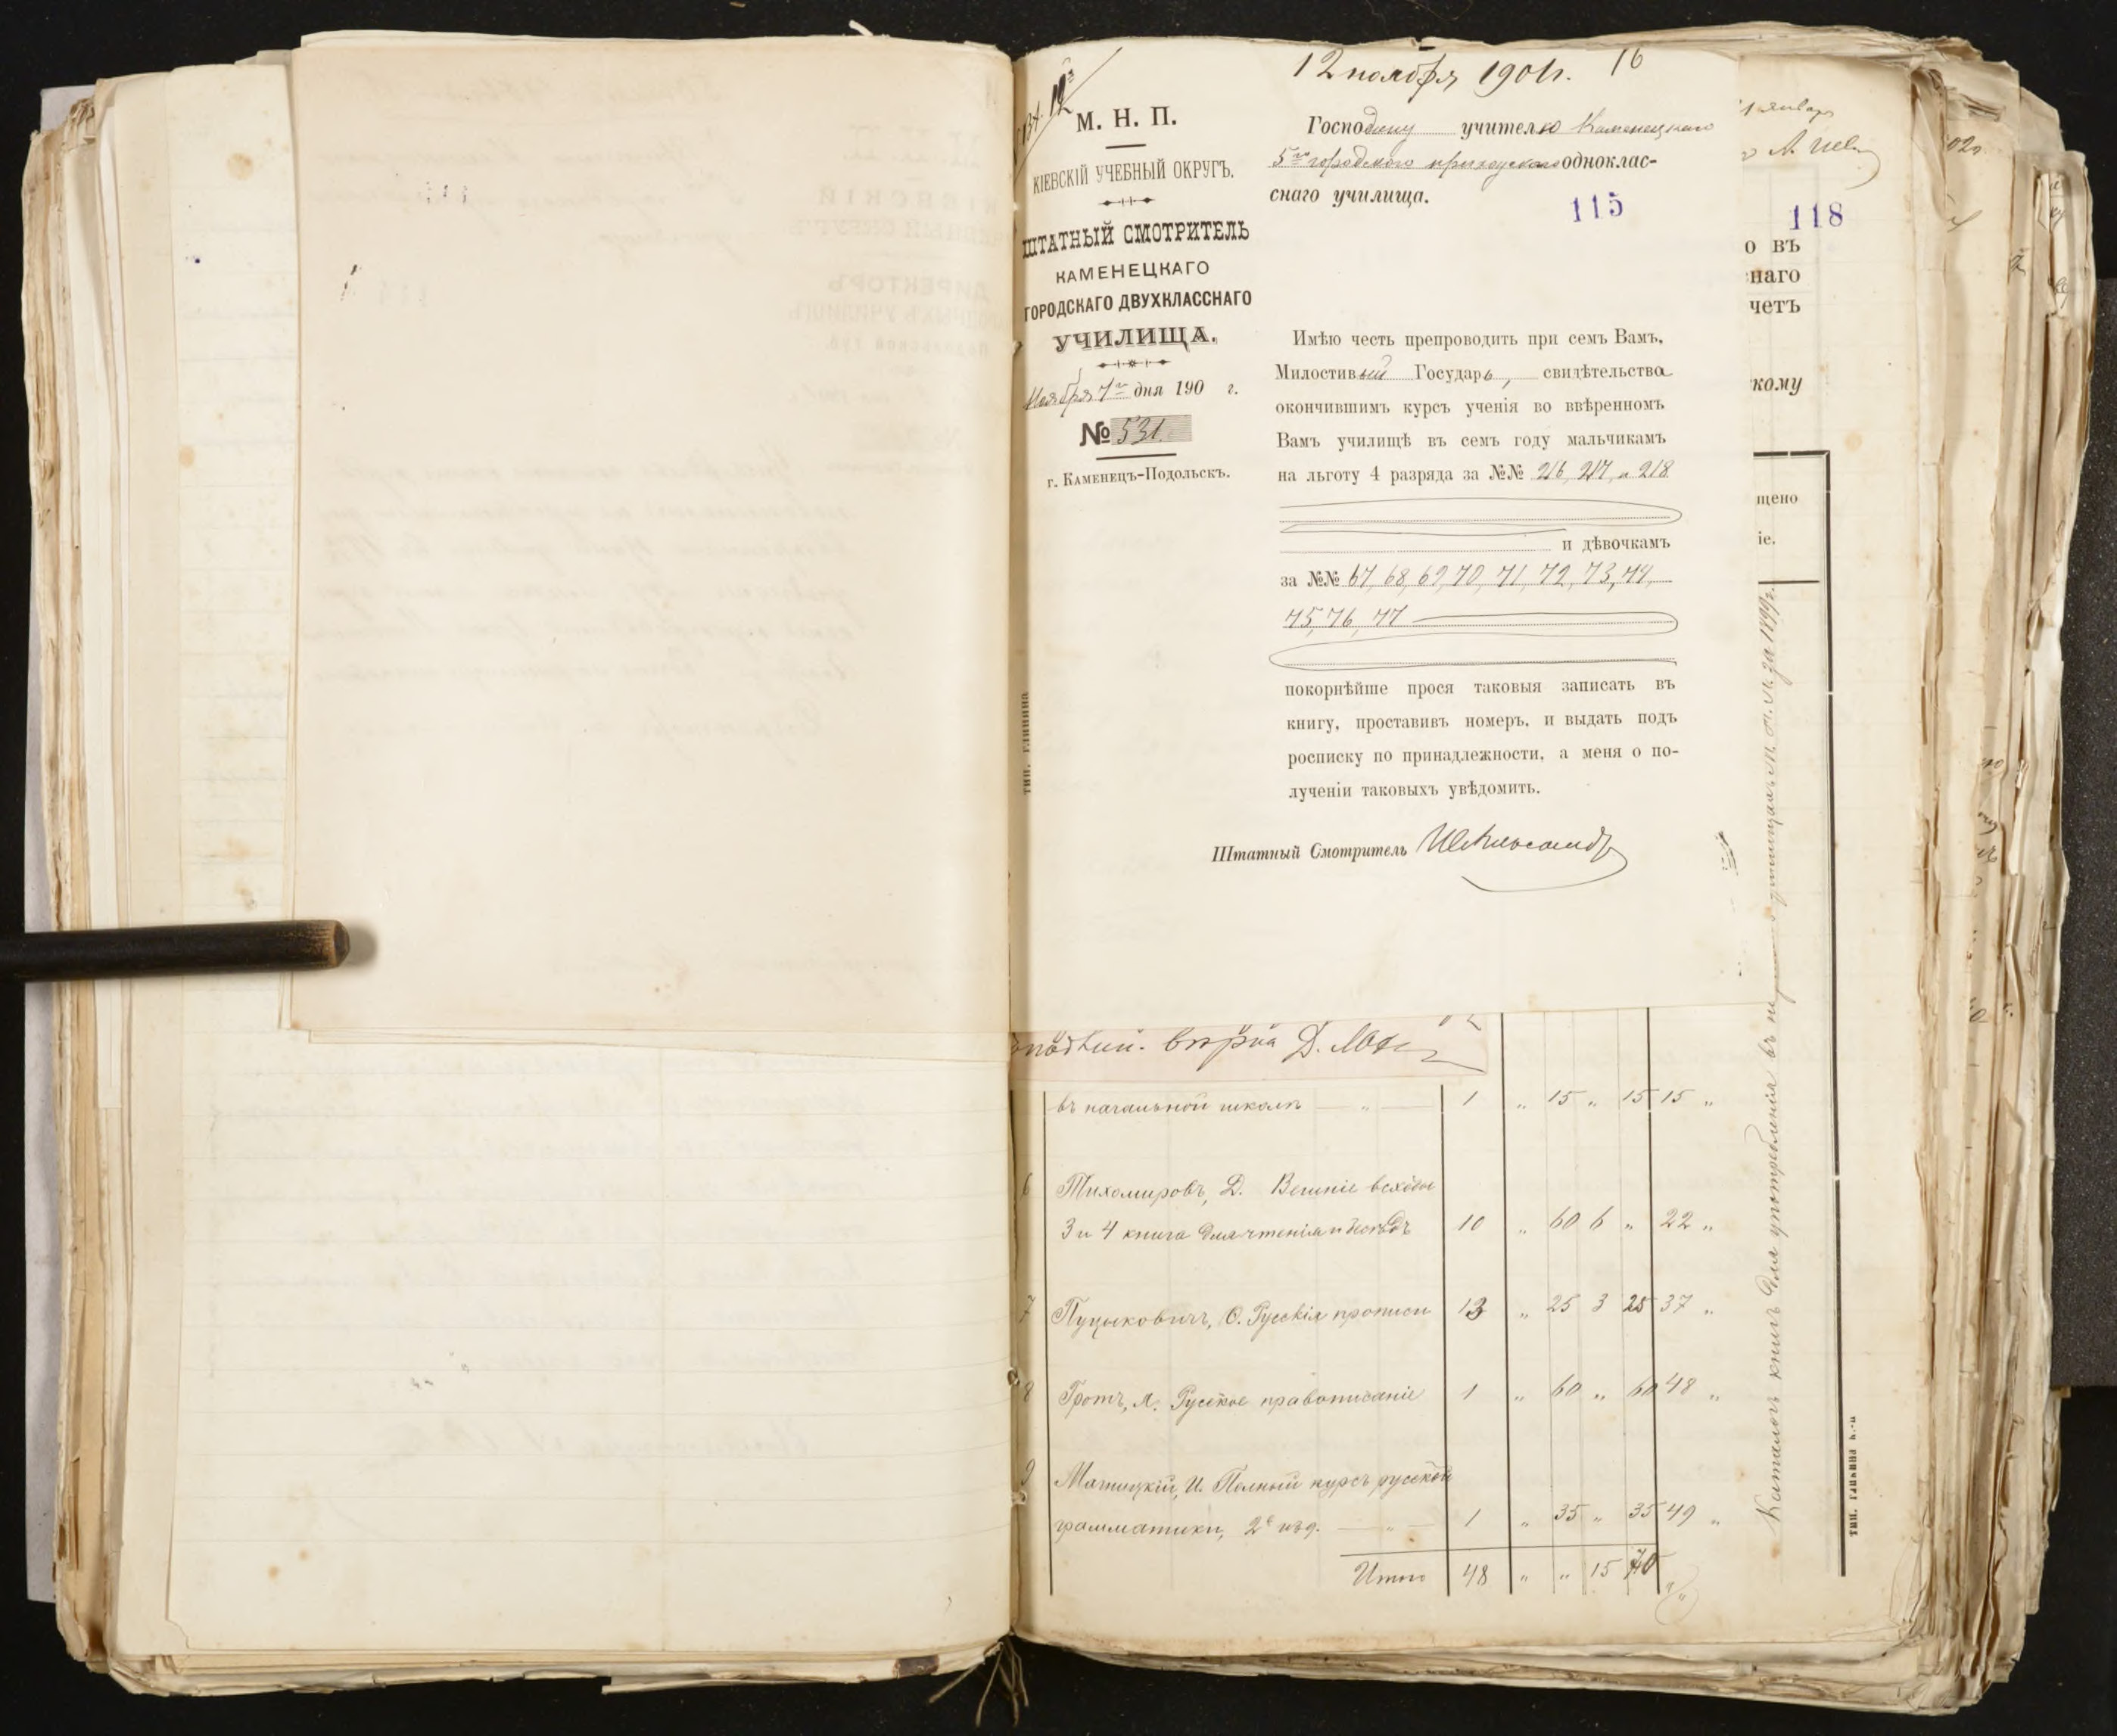 12 ноября 1901 г. 16
М. Н. П.
КІЕВСКІЙ УЧЕБНЫЙ ОКРУГЪ.
ШТАТНЫЙ СМОТРИТЕЛЬ
КАМЕНЕЦКАГО
ГОРОДСКАГО ДВУХКЛАССНАГО
УЧИЛИЩА.
Ноября 7го дня 190 г.
№ 531.
г. Каменецъ-Подольскъ.
Господину учителю Каменецкаго
5го городского приходскаго одноклас-
снаго училища.
115
Имѣю честь препроводить при семъ Вамъ,
Милостивый Государь, свидѣтельства
окончившимъ курсъ ученія во ввѣренномъ
Вамъ училищѣ въ семъ году мальчикамъ
на льготу 4 разряда за №№ 216, 217, и 218
и дѣвочкамъ
за №№ 67, 68, 69, 70, 71, 72, 73, 74,
75, 76, 77
покорнѣйше прося таковыя записать въ
книгу, проставивъ номеръ, и выдать подъ
росписку по принадлежности, а меня о по-
лученіи таковыхъ увѣдомить.
Штатный Смотритель
тип. глинина
118
о въ
наго
четъ
кому
щено
іе.
въ начальной школѣ — „ — 1 „ 15 „ 15 15 „
6 Тихомировъ, Д. Вешніе всходы
3 и 4 книга для чтенія и бесѣдъ 10 „ 60 6 „ 22 „
7 Пуцыковичъ, Ѳ. Русскія прописи 13 „ 25 3 25 37 „
8 Гротъ, Я. Русское правописаніе 1 „ 60 „ 60 48 „
9 Магницкій, И. Полный курсъ русской
грамматики, 2е изд. — „ — 1 „ 35 „ 35 49 „
Итого 48 „ „ 15 70
Каталогъ книгъ для употребленія въ